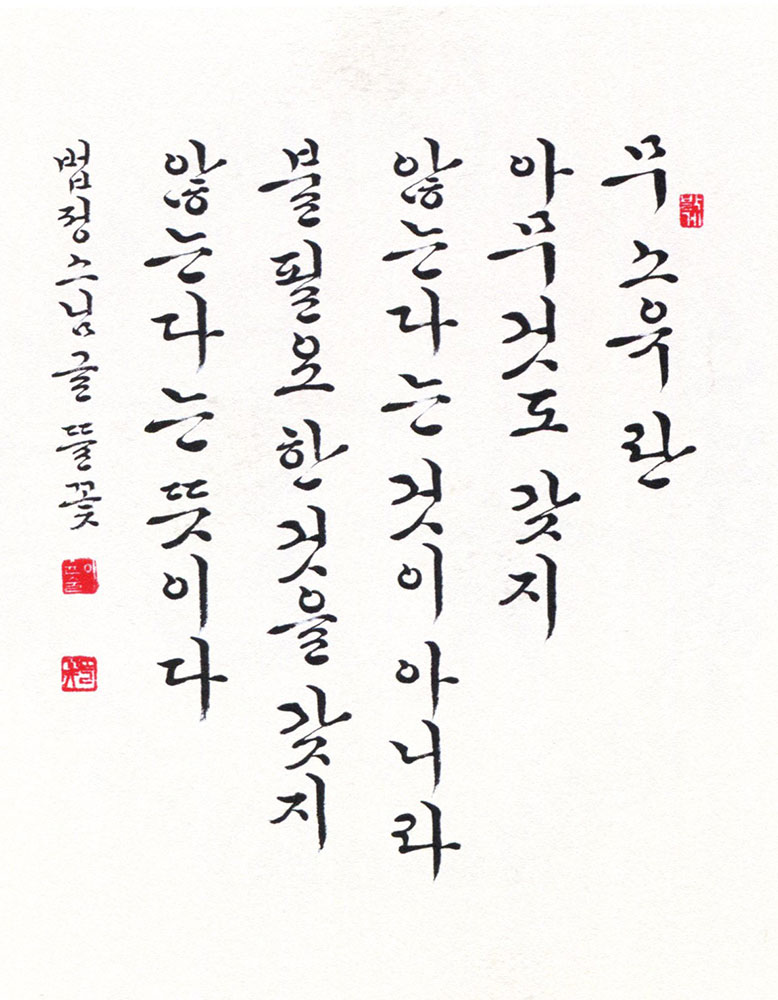 무소유란
아무것도 갖지
않는다는 것이 아니라
불필요한 것을 갖지
않는다는 뜻이다
법정스님글 뜰꽃